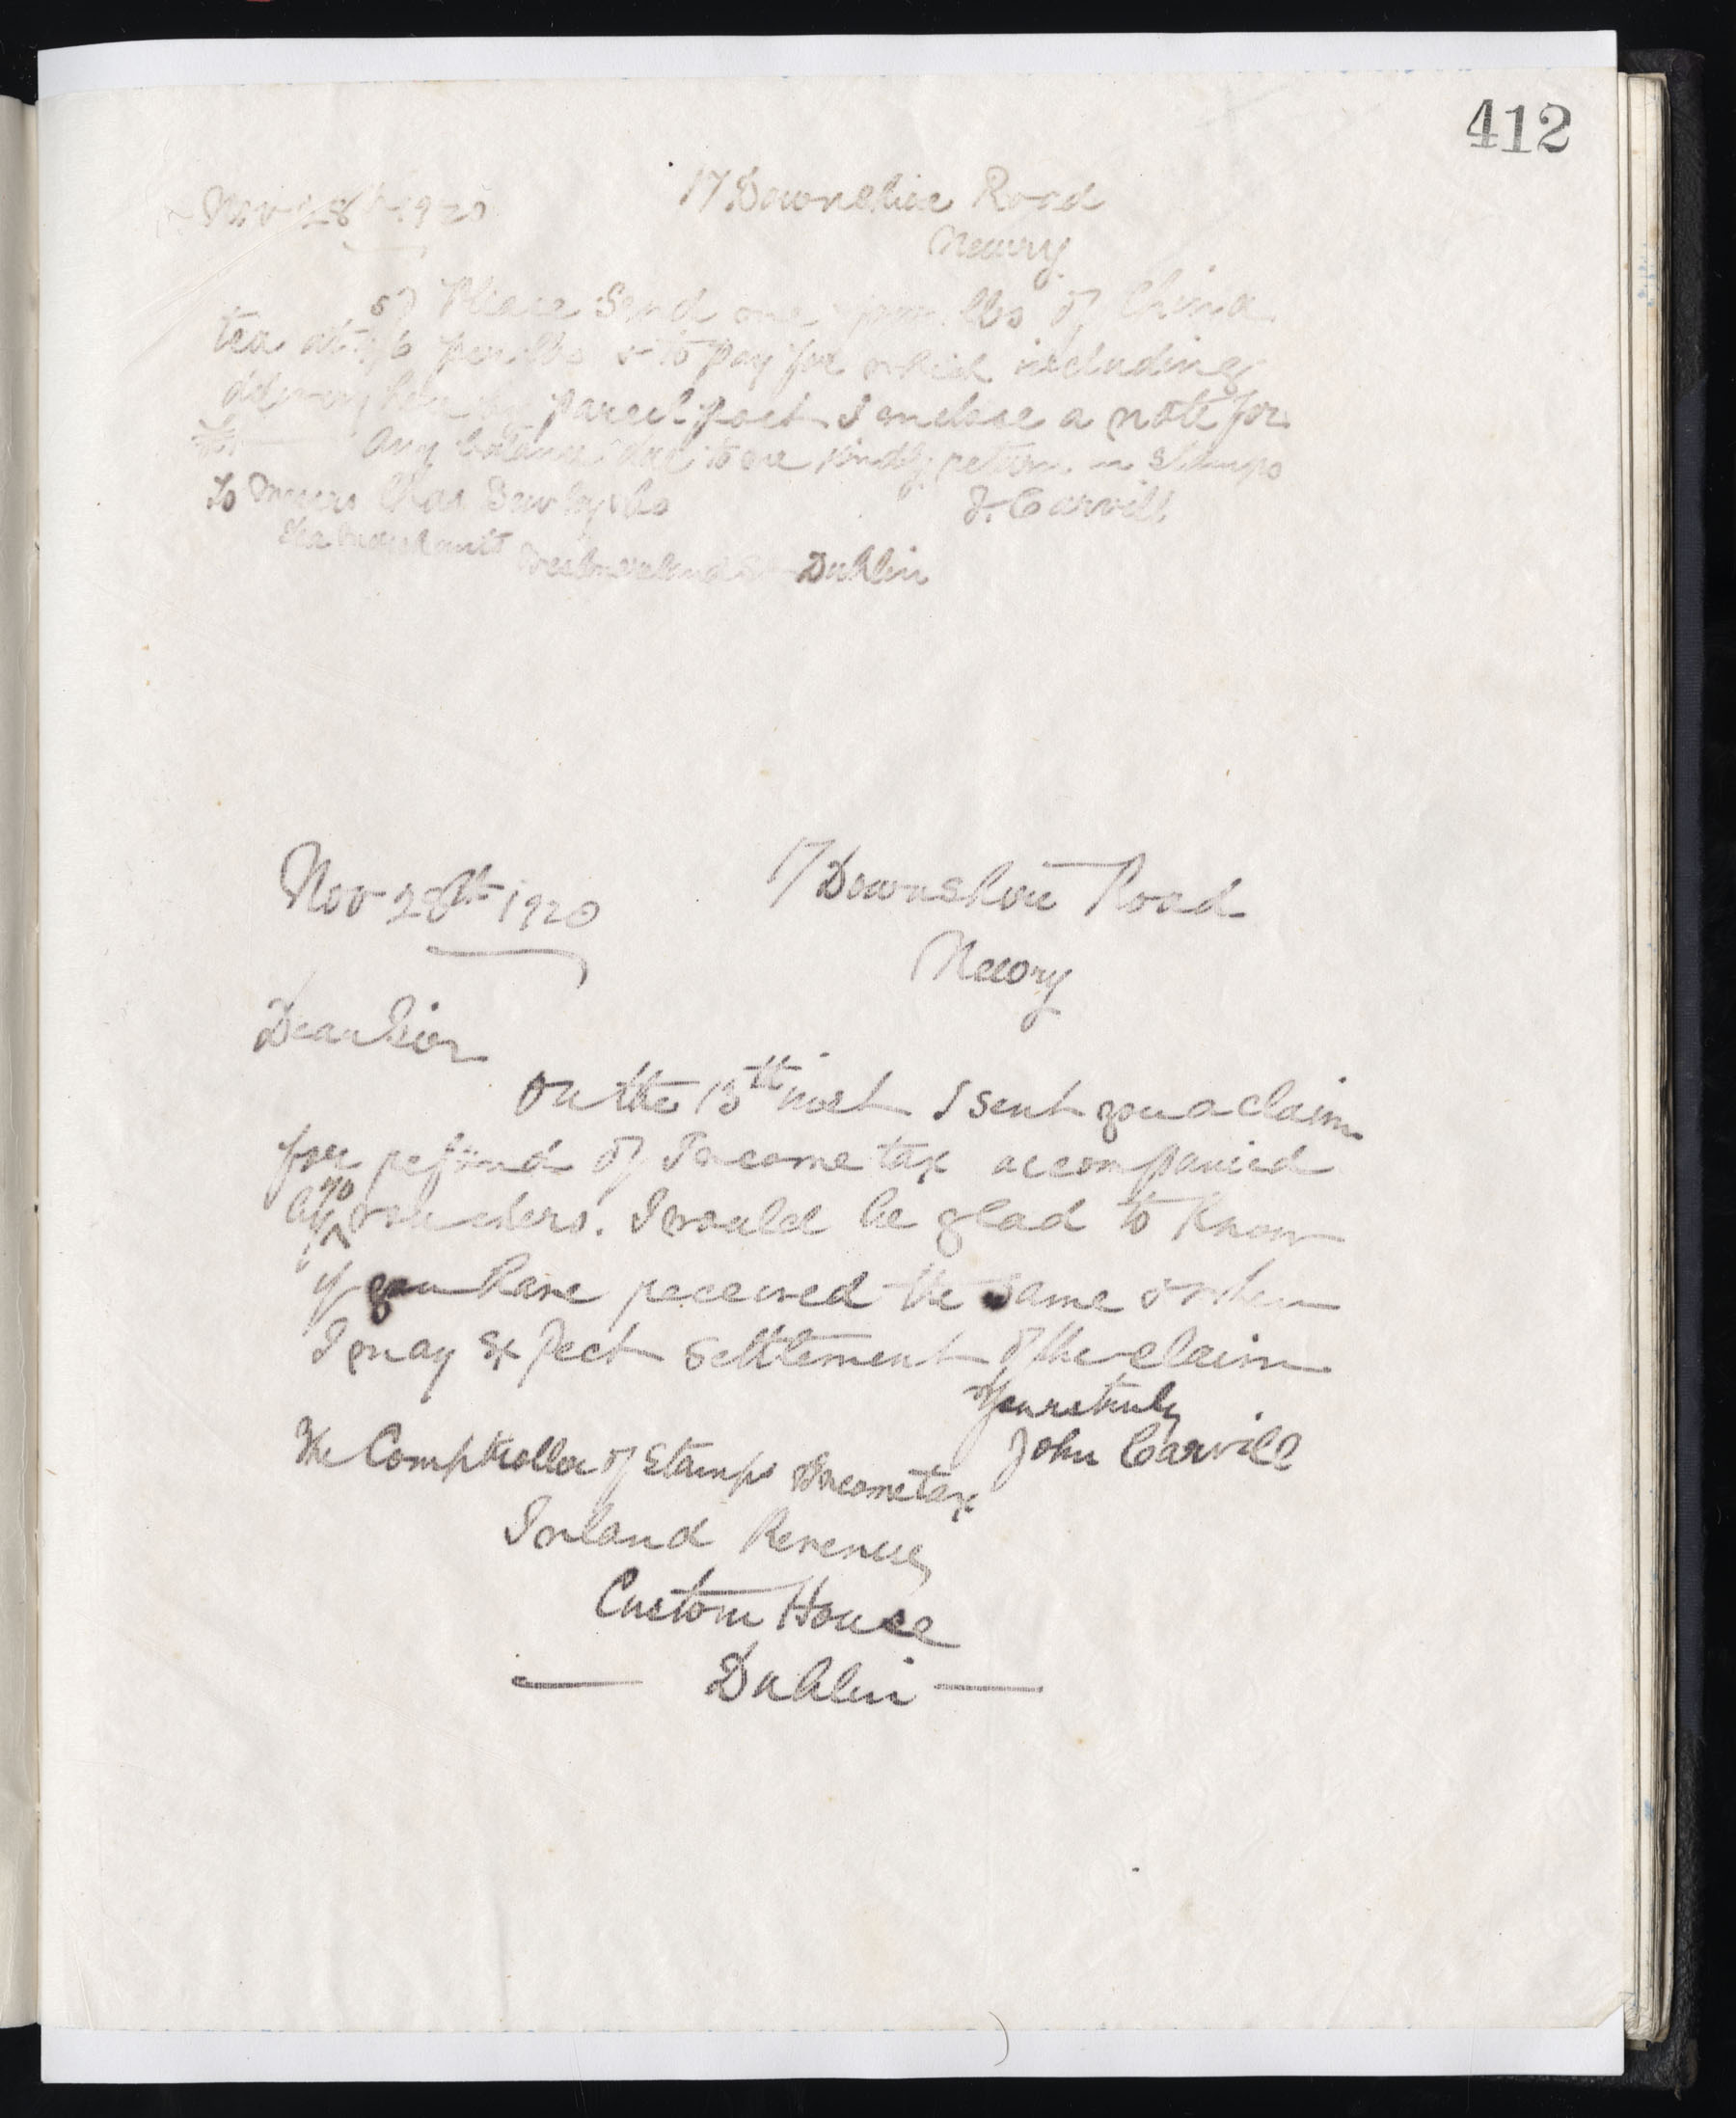 412
Nov 28th 1920
17 Downshire Road
Newry
Please Send me lbs of China
tea at per lb & to pay for which including
delivery here by parcel post I enclose a note for
Any balance due to me kindly return in stamps
To Messrs Chas & Co
J. Carvill
Tea Merchants Westmoreland St Dublin
Nov 28th 1920
17 Downshire Road
Newry
Dear Sir
On the 15th inst I sent you a claim
for refund of Income tax accompanied
by 70 vouchers. I would be glad to know
if you have received the same & when
I may expect settlement of the claim
Yours truly
John Carvill
The Comptroller of Stamps Income tax
Inland Revenue
Custom House
Dublin